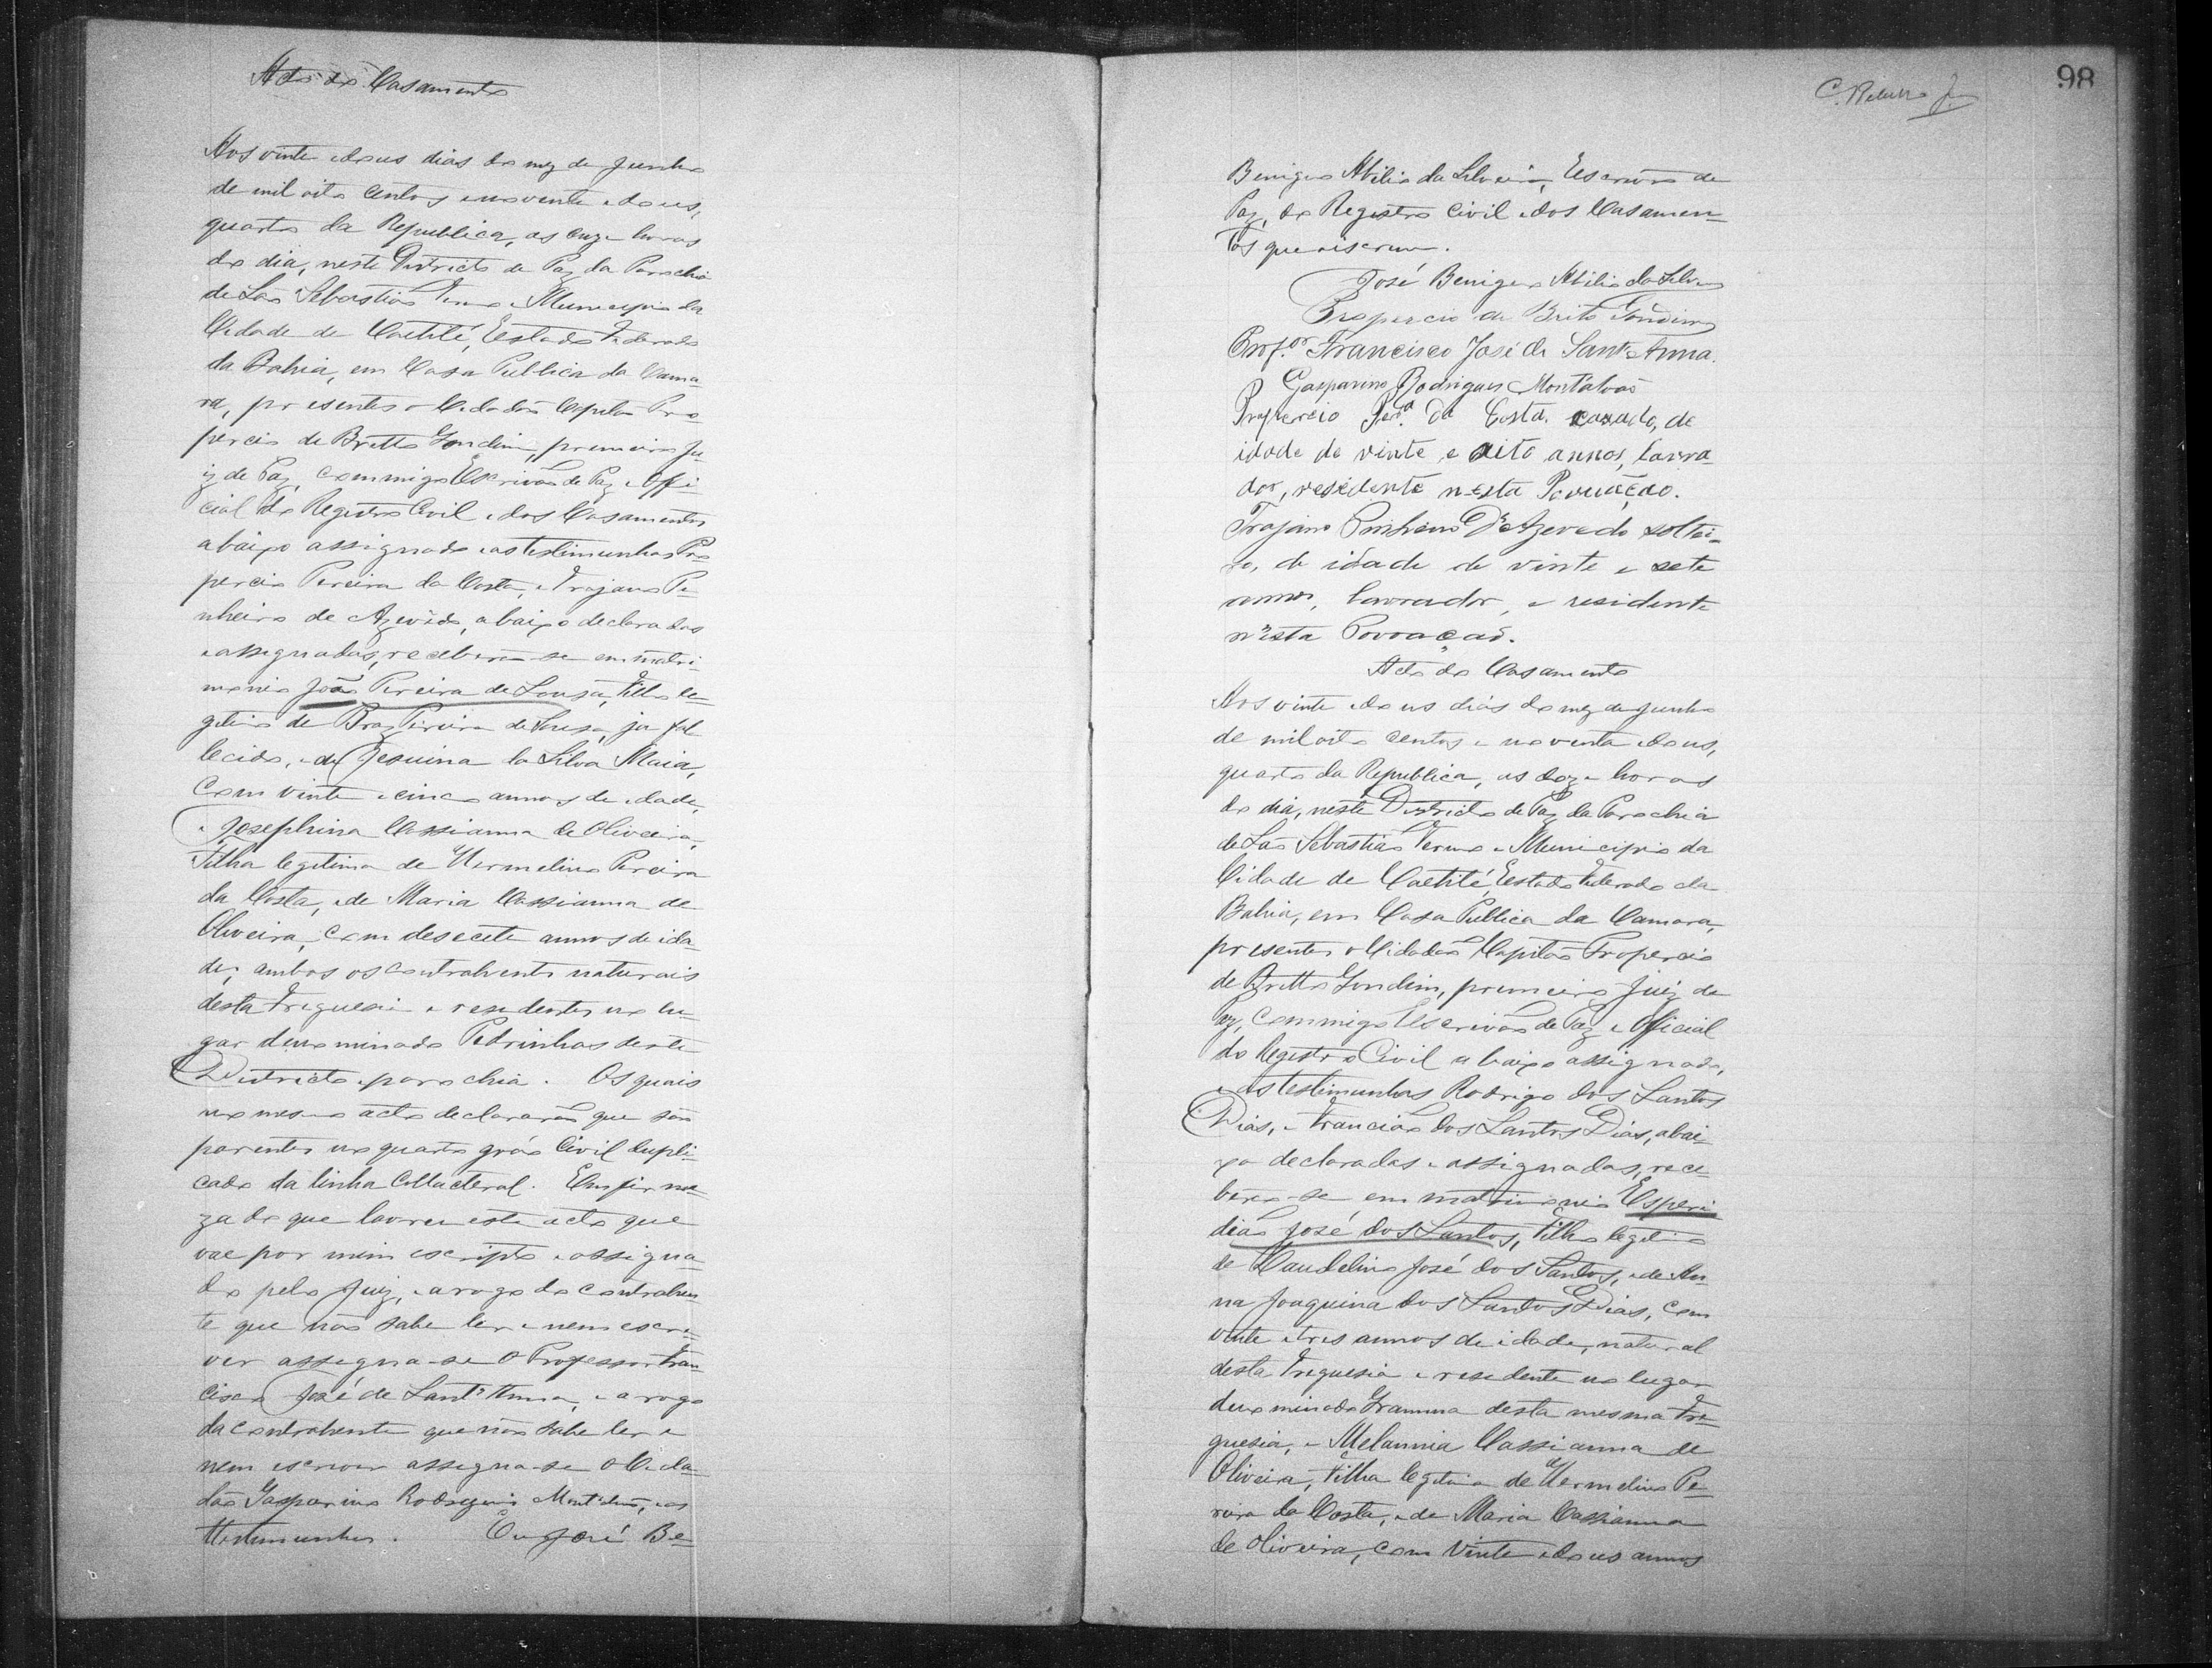 Acto do Casamento
Aos vinte e dous dias do mez de Junho
de mil oito centos e noventa e dous,
quarto da Republica, as onze horas
do dia, neste Districto de Paz da Parochia
de São Sebastião Termo e Municipio da
Cidade de Caetité, Estado Federado
da Bahia, em Casa Publica da Cama-
ra, presentes o Cidadão Capitão Pro
percio de Britto Gondim, primeiro Ju-
iz de Paz, commigo Escrivão de Paz e Offi-
cial do Registro Civil e dos Casamentos
abaixo assignado e as testimunhas Pro
percio Pereira da Costa, e Trajano Pi-
nheiro de Azevêdo, abaixo declaradas
e assignadas, receberão-se em matri-
monio João Pereira de Sousa, Filho le-
gitimo de Braz Pereira de Sousa, ja fal
lecido, e de Jesuina da Silva Maia,
Com vinte e cinco annos de idade,
e Josephina Cassianna de Oliveira,
Filha legitima de Hermelino Pereira
da Costa, e de Maria Cassianna de
Oliveira, com desecete annos de ida-
de, ambos os contrahentes naturais
desta Freguesia e residentes no lu-
gar denominado Pedrinhas deste
Districto e parochia. Os quais
no mesmo acto declararão que são
parentes no quarto gráo Civil dupli-
cado da linha Collacteral. Em firme-
za do que lavrei este acto que
vae por mim escripto e assigna-
do pelo Juiz, e a rogo do contrahen
te que não sabe ler e nem escre-
ver assegna-se o Professor Fran
cisco José de Sant'Anna, e a rogo
da contrahente que não sabe ler e
nem escrever assegna-se o Cida-
dão Gasparino Rodrigues Montalvão, e as
testimunhas. Eu José Be-
98
Benigno Abilio da Silveira, Escrivão de
Paz, do Registro Civil e dos Casamen-
tos que o iscrevi.
José Benigno Abilio da Silveira
Propercio de Brito Gondim
Prof.or Francisco José de Sant'Anna.
Gasparino Rodrigues Montalvão
Propercio Per.a da Costa. casado, de
idade de vinte e oito annos, lavra-
dor, residente nesta Povoação.
Trajano Pinheiro D'Azevedo soltei-
ro, de idade de vinte e sete
annos, lavrador, e residente
n'esta Povoação.
Acto do Casamento
Aos vinte e dous dias do mez de Junho
de mil oito centos e noventa e dous,
quarto da Republica, as doze horas
do dia, neste Districto de Paz da Parochia
de São Sebastião Termo e Municipio da
Cidade de Caetité, Estado Federado da
Bahia, em Casa Publica da Camara,
presentes o Cidadão Capitão Propercio
de Britto Gondim, primeiro Juiz de
Paz, commigo Escrivão de Paz e Official
do Registro Civil abaixo assignado,
e as testimunhas Rodrigo dos Santos
Dias, e Francisco dos Santos Dias, abai-
xo declaradas e assignadas, rece-
berão-se em matrimonio Esperi
dião José dos Santos, Filho legitimo
de Claudelino José dos Santos, e de An-
na Joaquina dos Santos Dias, com
vinte e tres annos de idade, natural
desta Freguesia e residente no lugar
denominado Gramma desta mesma Fre-
guesia, e Melannia Cassianna de
Oliveira, Filha legitima de Hermelino Pe-
reira da Costa, e de Maria Cassianna
de Oliveira, com vinte e dous annos